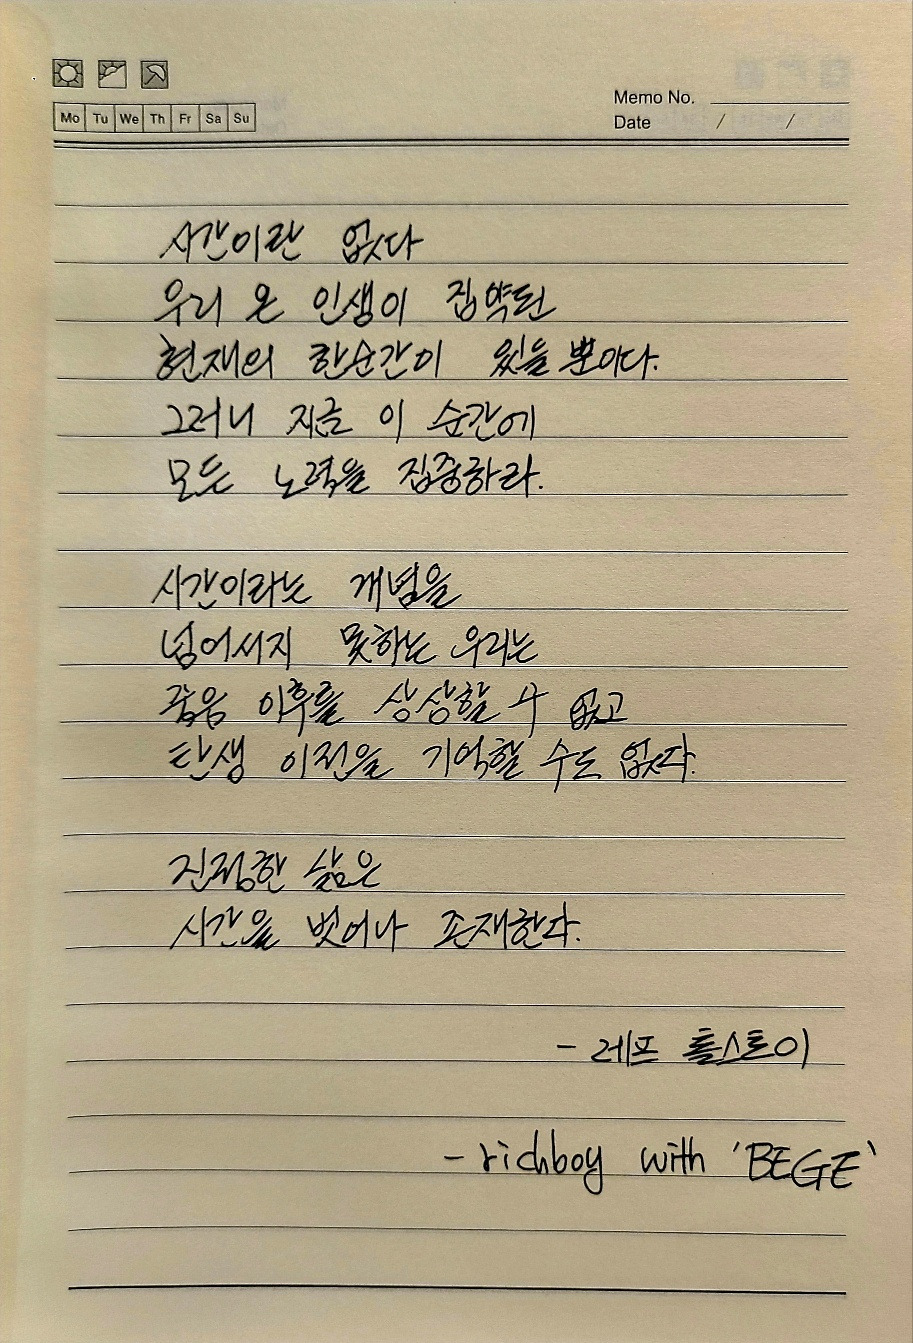 Mo Tu We Th Fr Sa Su
Memo No.
Date / /
시간이란 없다
우리 온 인생이 집약된
현재의 한순간이 있을 뿐이다.
그러니 지금 이 순간에
모든 노력을 집중하라.
시간이라는 개념을
넘어서지 못하는 우리는
죽음 이후를 상상할 수 없고
탄생 이전을 기억할 수도 없다.
진정한 삶은
시간을 벗어나 존재한다.
- 레프 톨스토이
- richboy with 'BEGE'